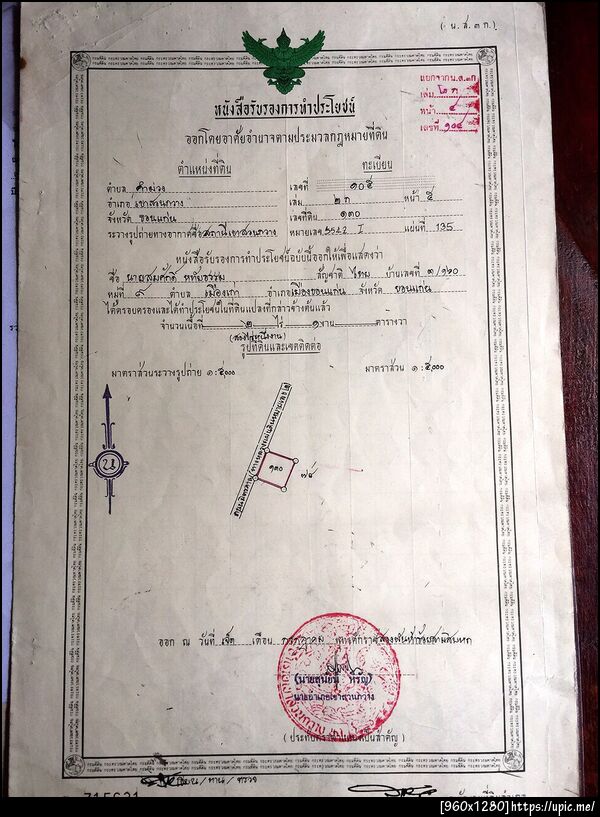 ( น.ส.๓ ก.)
แยกจาก น.ส.๓ก
เล่ม ๒ ก
หน้า ๔
เลขที่ ๑๐๔
หนังสือรับรองการทำประโยชน์
ออกโดยอาศัยอำนาจตามประมวลกฎหมายที่ดิน
ตำแหน่งที่ดิน
ทะเบียน
ตำบล คำม่วง
เลขที่ ๑๐๕
อำเภอ เขาสวนกวาง
เล่ม ๒ ก หน้า ๕
จังหวัด ขอนแก่น
เลขที่ดิน ๑๓๐
ระวางรูปถ่ายทางอากาศชื่อ สถานีเขาสวนกวาง หมายเลข 5542 I แผ่นที่ 135
หนังสือรับรองการทำประโยชน์ฉบับนี้ออกให้เพื่อแสดงว่า
ชื่อ นายสมศักดิ์ หทัยธรรม สัญชาติ ไทย บ้านเลขที่ ๓/๑๖๐
หมู่ที่ ๘ ตำบล เมืองเก่า อำเภอ เมืองขอนแก่น จังหวัด ขอนแก่น
ได้ครอบครองและได้ทำประโยชน์ในที่ดินแปลงที่กล่าวข้างต้นแล้ว
จำนวนเนื้อที่ ๒ ไร่ ๑ งาน ตารางวา
(สองไร่หนึ่งงาน)
รูปที่ดินและเขตติดต่อ
มาตราส่วนระวางรูปถ่าย ๑:๕,๐๐๐
มาตราส่วน ๑:๕,๐๐๐
๑๓๐
๗๘
ออก ณ วันที่ เจ็ด เดือน กรกฎาคม พุทธศักราช สองพันห้าร้อยสามสิบหก
นายอำเภอเขาสวนกวาง
( ประทับตราประจำตำแหน่งเป็นสำคัญ )
เขียน/ทาน/ตรวจ
715621
[960x1280]https://upic.me/